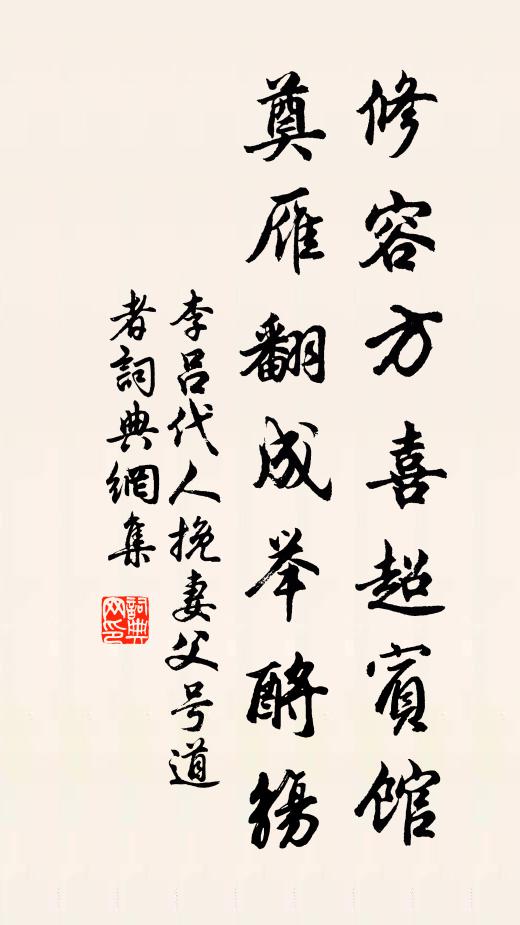 修容方喜超賓館
奠雁翻成举酹觴
李呂代人挽妻父号道
者詞典網集
詞典
网印